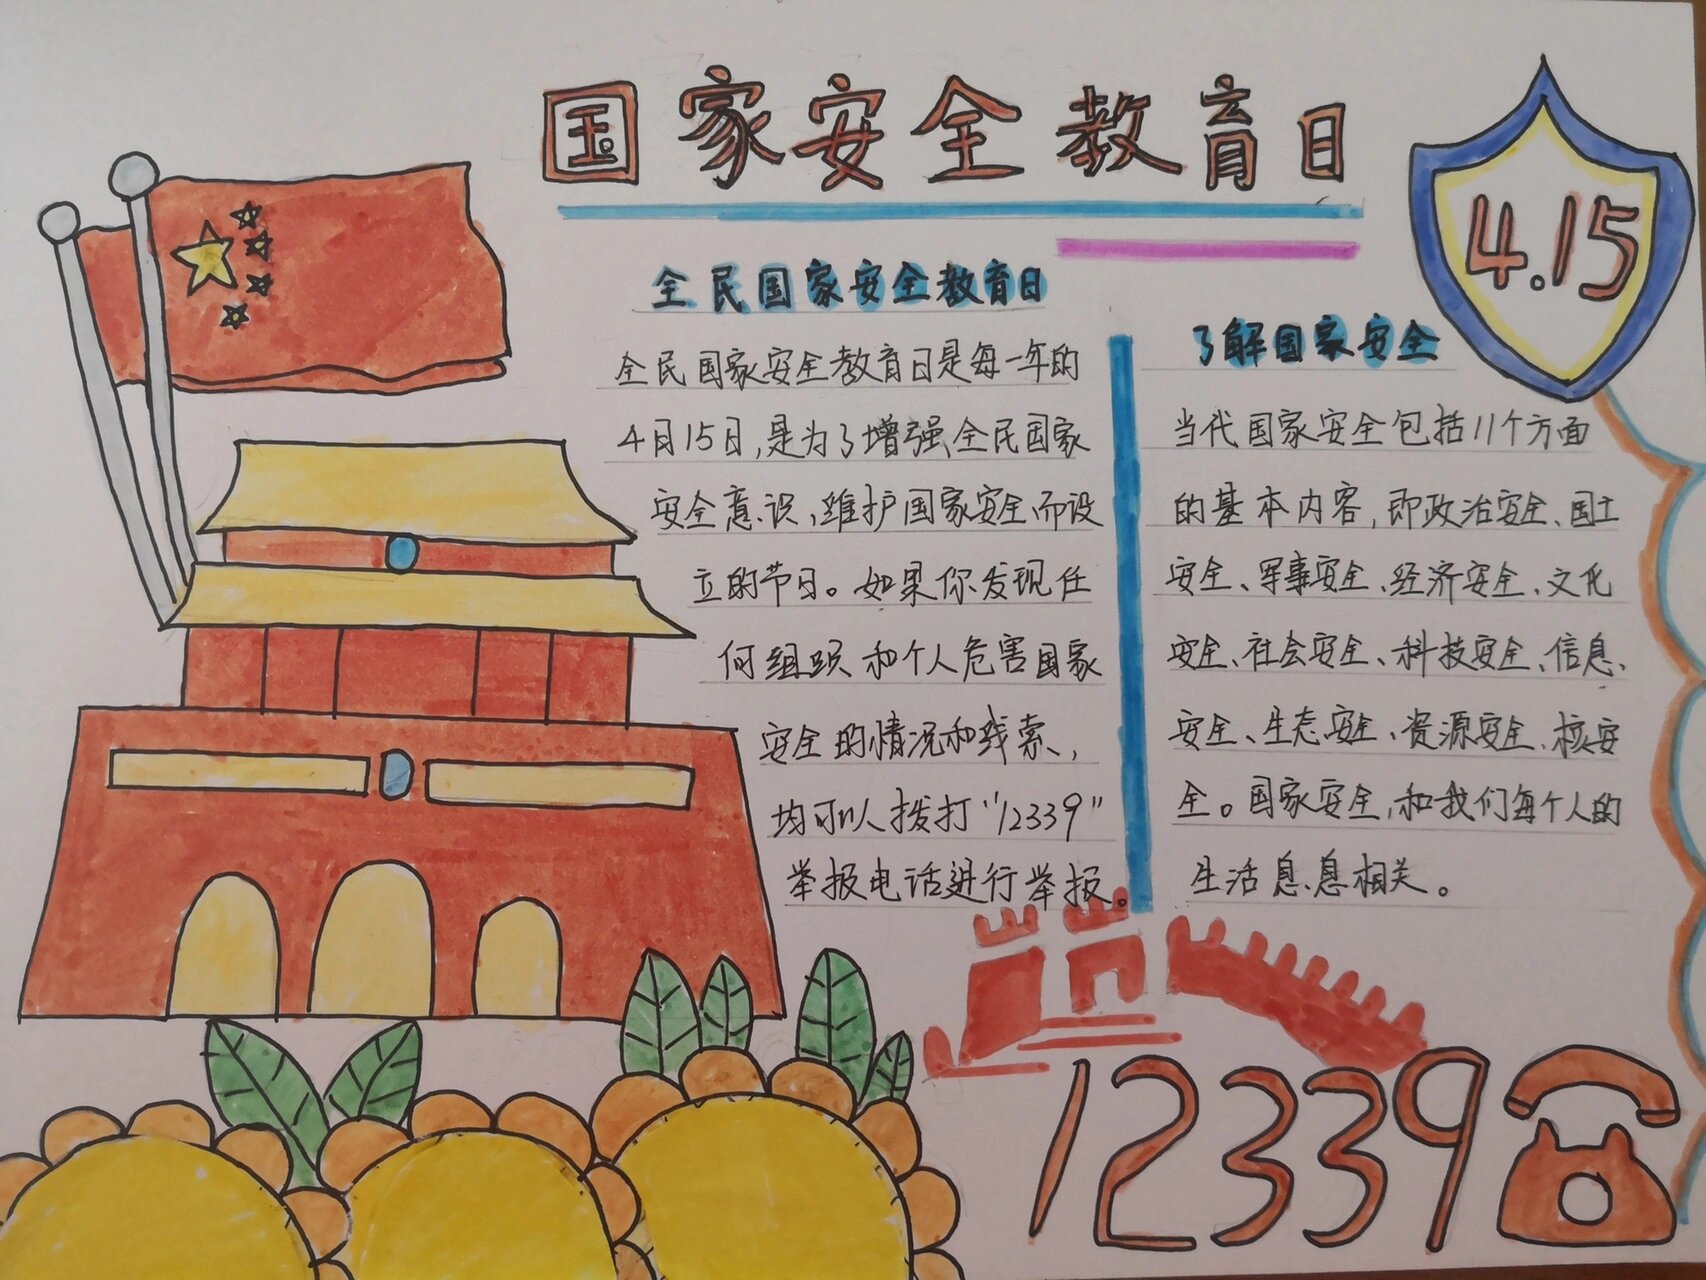 国家安全教育日
4.15
全民国家安全教育日
全民国家安全教育日是每一年的
4月15日,是为了增强全民国家
安全意识,维护国家安全而设
立的节日。如果你发现任
何组织和个人危害国家
安全的情况和线索,
均可以人拨打“12339”
举报电话进行举报。
了解国家安全
当代国家安全包括11个方面
的基本内容,即政治安全、国土
安全、军事安全、经济安全、文化
安全、社会安全、科技安全、信息、
安全、生态安全、资源安全、核安
全。国家安全,和我们每个人的
生活息息相关。
12339